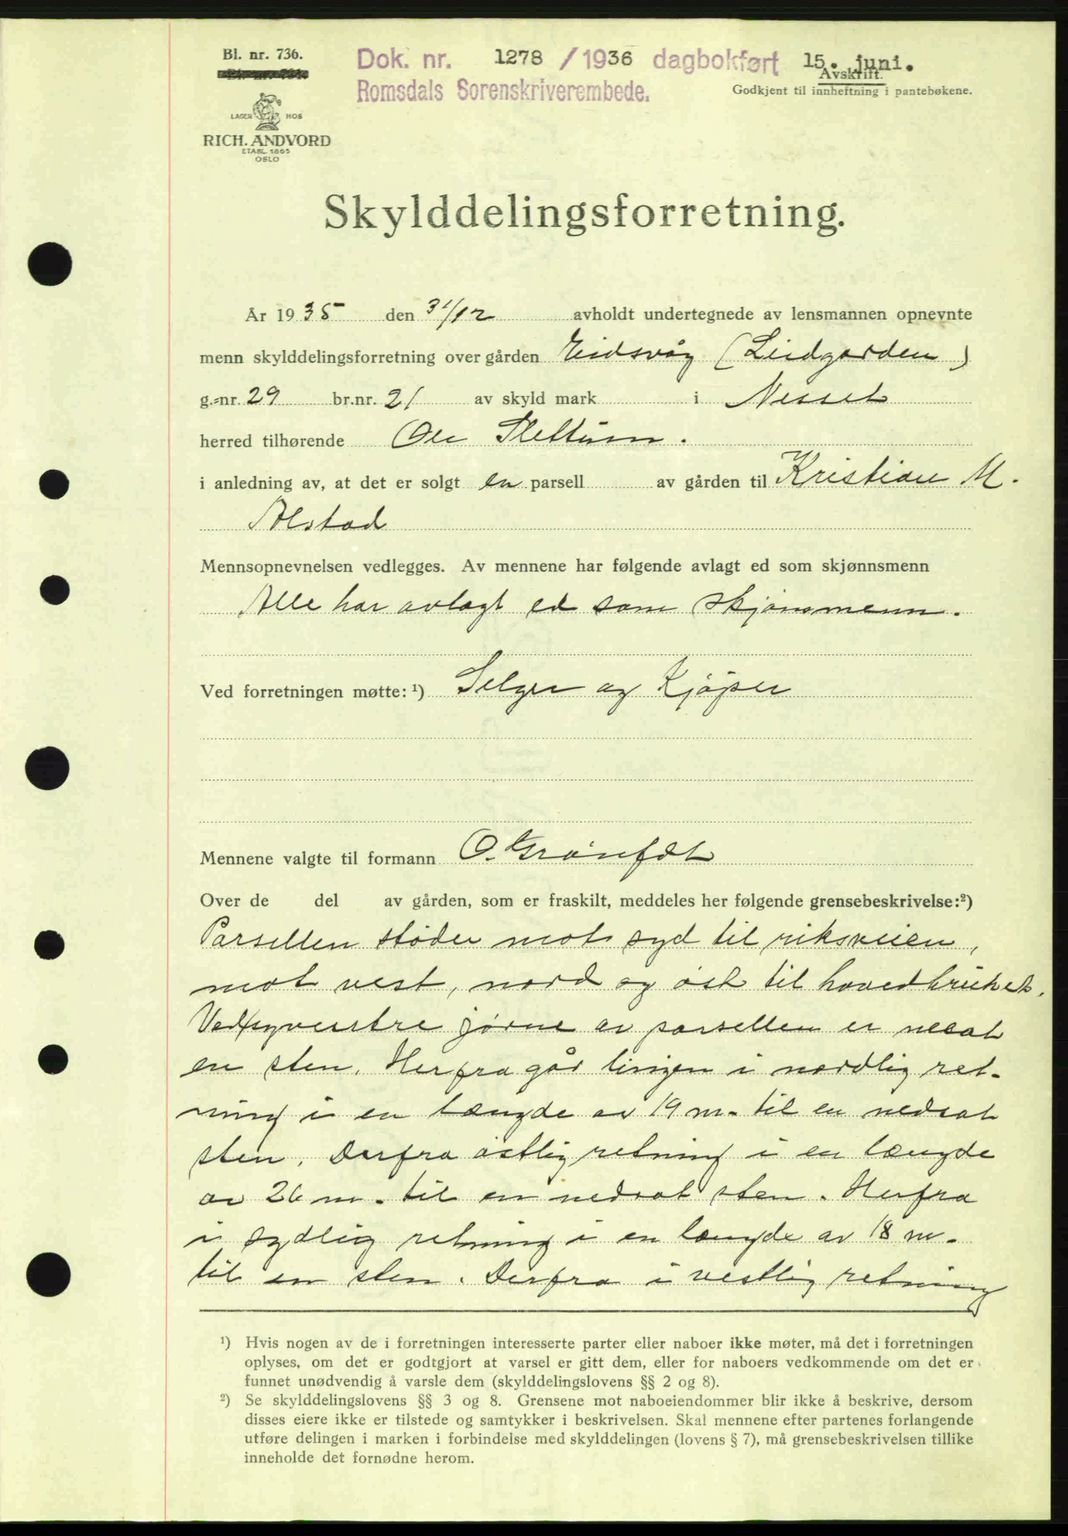 Bl. nr. 736.
Dok. nr. 1278 /1936 dagbokført 15. juni.
Avskrift.
Romsdals Sorenskriverembede.
Godkjent til innheftning i pantebøkene.
LAGER HOS
RICH. ANDVORD
ETABL. 1865
OSLO
Skylddelingsforretning.
År 1935 den 31/12 avholdt undertegnede av lensmannen opnevnte
menn skylddelingsforretning over gården Eidsvåg (Lindgarden)
g.-nr. 29 br.nr. 21 av skyld mark i Nesset
herred tilhørende Ole Slettum.
i anledning av, at det er solgt en parsell av gården til Kristian M.
Alstad
Mennsopnevnelsen vedlegges. Av mennene har følgende avlagt ed som skjønnsmenn
Alle har avlagt ed som skjønnmenn.
Ved forretningen møtte: ¹) Selger og Kjøper
Mennene valgte til formann O.
Over de del av gården, som er fraskilt, meddeles her følgende grensebeskrivelse:²)
Parsellen støder mot syd til riksveien,
mot vest, nord og øst til hovedbruket.
jørne av parsellen er nesat
en sten. Herfra går linjen i nordlig ret-
ning i en længde av 19 m. til en nedsat
sten. Derfra østlig retning i en længde
av 26 m. til en nedsat sten. Herfra
i sydlig retning i en længde av 18 m.
til en sten. Derfra i vestlig retning
¹) Hvis nogen av de i forretningen interesserte parter eller naboer ikke møter, må det i forretningen
oplyses, om det er godtgjort at varsel er gitt dem, eller for naboers vedkommende om det er
funnet unødvendig å varsle dem (skylddelingslovens §§ 2 og 8).
²) Se skylddelingslovens §§ 3 og 8. Grensene mot naboeiendommer blir ikke å beskrive, dersom
disses eiere ikke er tilstede og samtykker i beskrivelsen. Skal mennene efter partenes forlangende
utføre delingen i marken i forbindelse med skylddelingen (lovens § 7), må grensebeskrivelsen tillike
inneholde det fornødne herom.